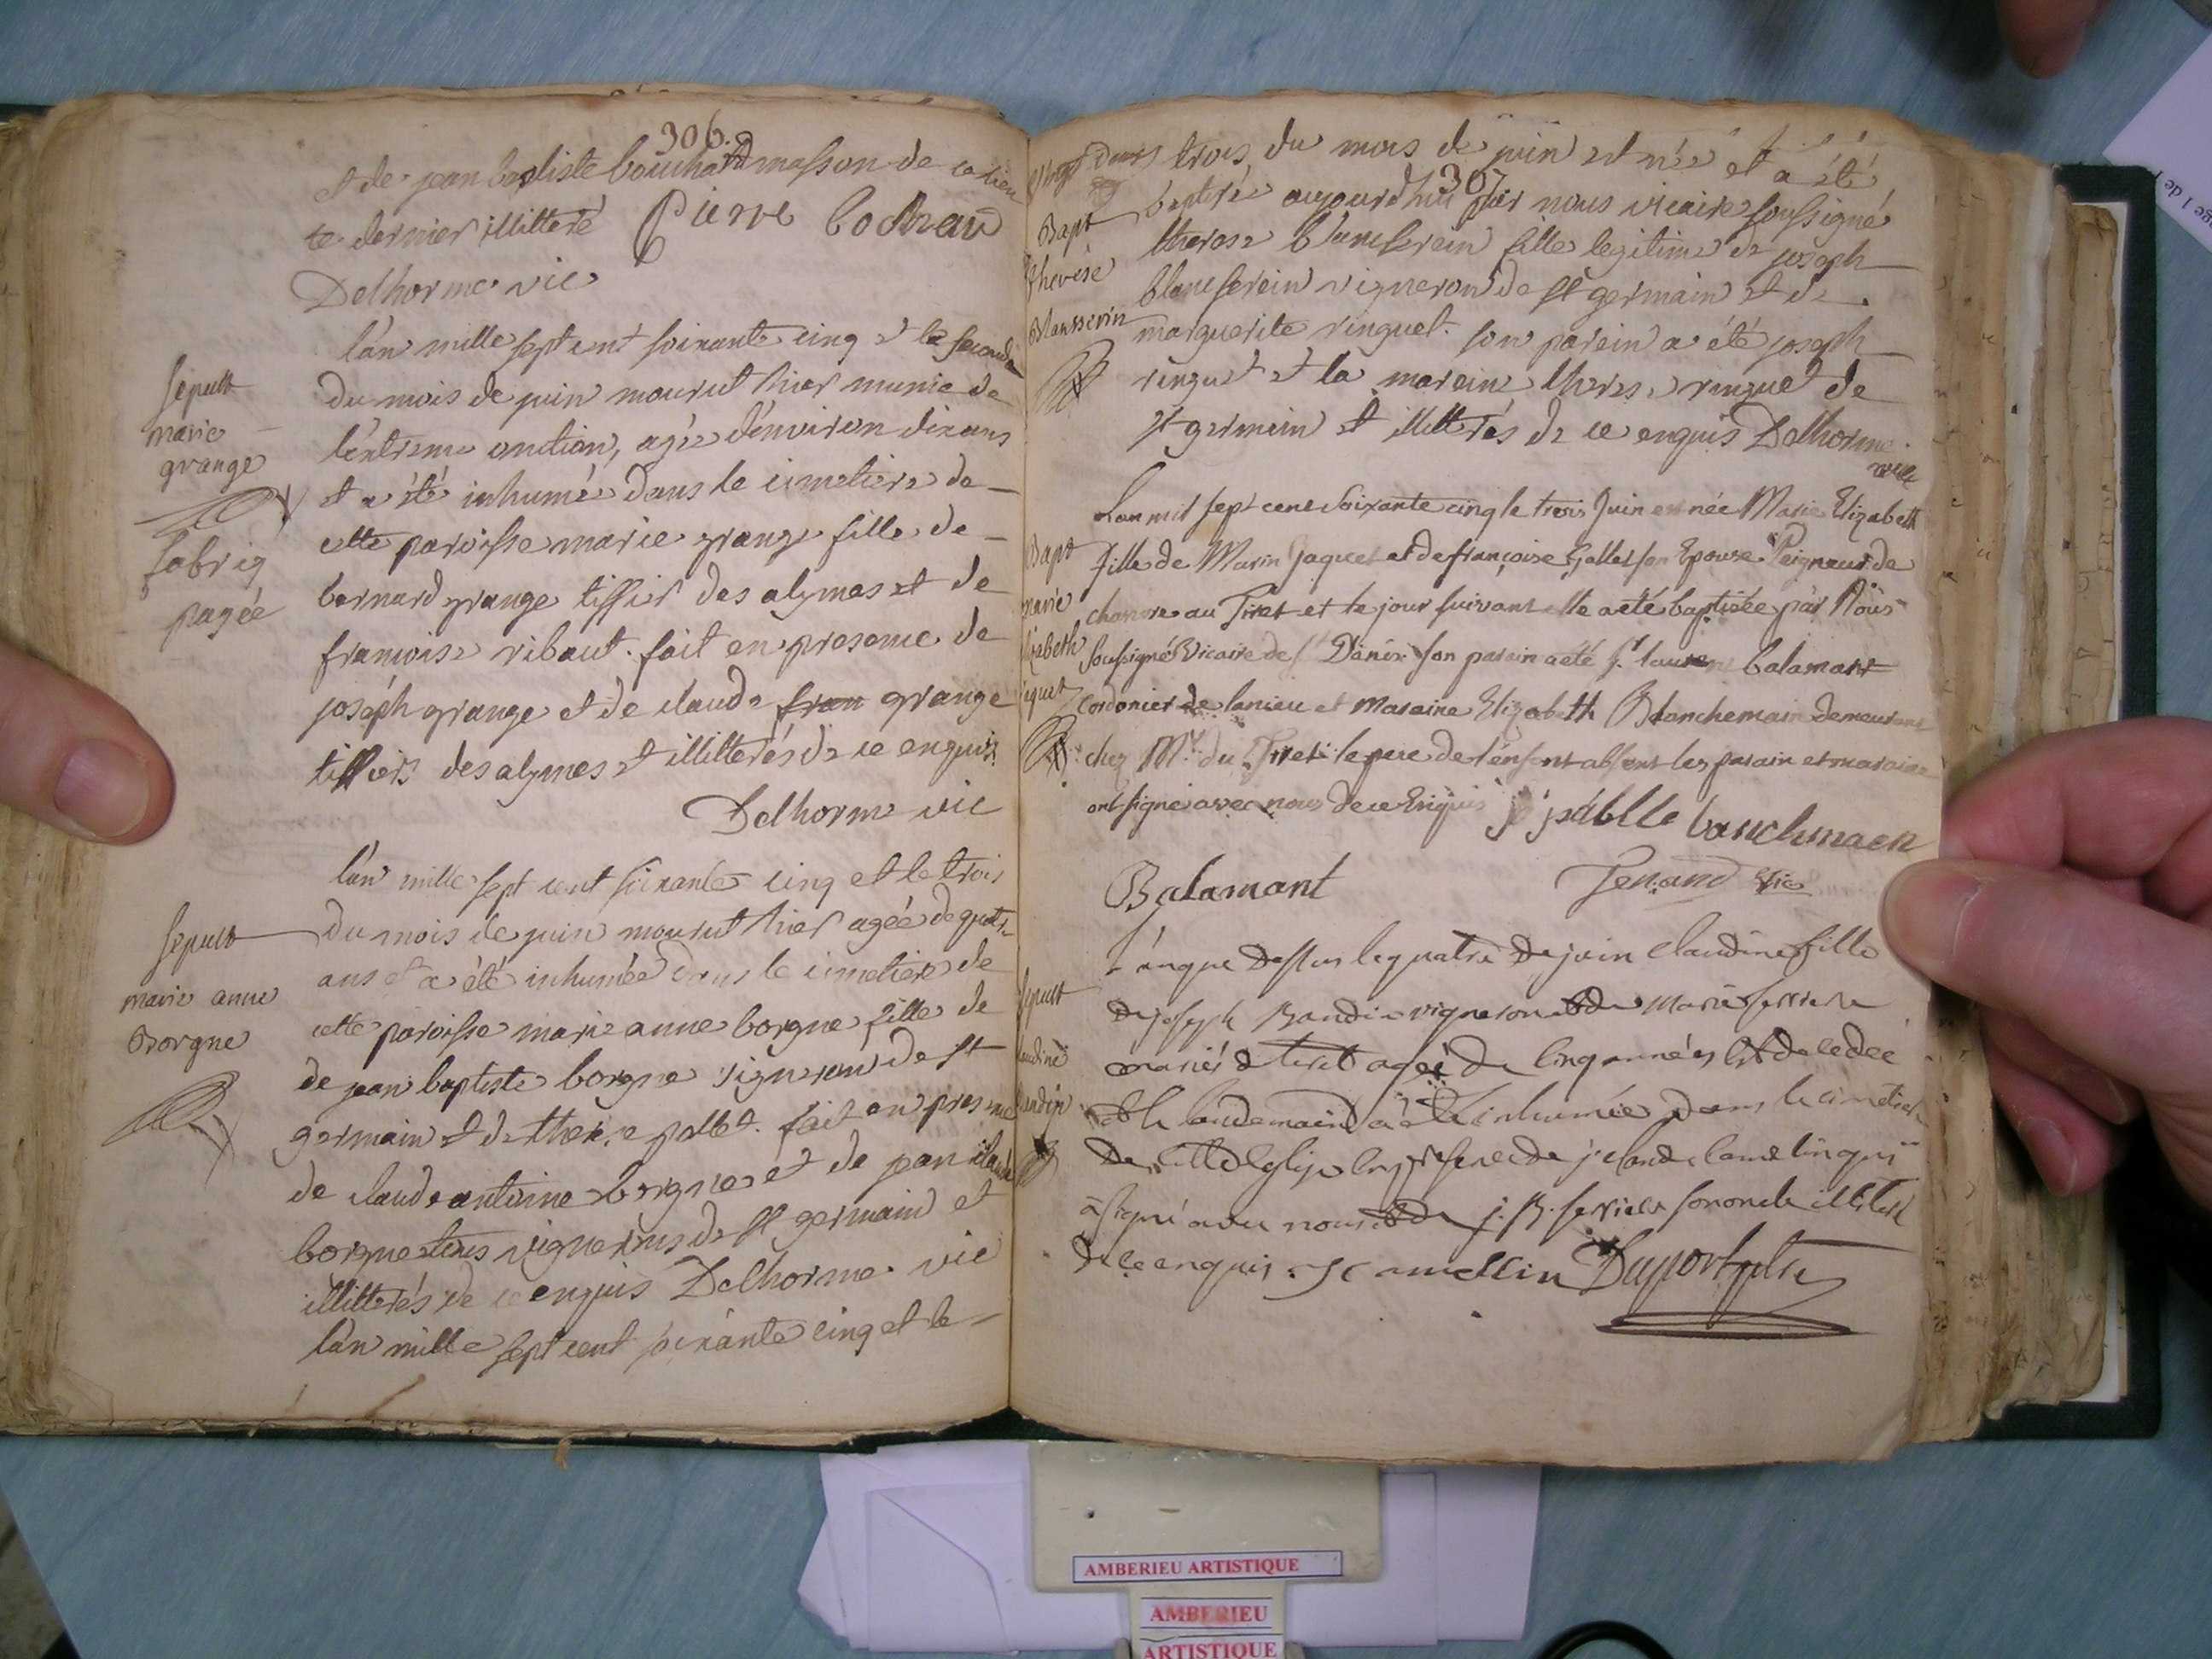 306.
et de jean baptiste bouchard masson de ce lieu
ce dernier illitteré Pierre bochrand
Delhorme vic
Sepult
marie
grange
fabriq
payée
l'an mille sept cent soixante cinq et le second
du mois de juin mourut hier munie de
l'extreme onction, agée d'environ dix ans
et a été inhumée dans le cimetiere de
cette paroisse marie grange fille de
bernard grange tissier des alymes et de
francoise ribaut. fait en presence de
joseph grange et de claude fran grange
tissiers des alymes et illitterés de ce enquis
Delhorme vic
Sepult
marie anne
Borgne
l'an mille sept cent soixante cinq et le trois
du mois de juin mourut hier agée de quatre
ans et a été inhumée dans le cimetiere de
cette paroisse marie anne borgne fille de
de jean baptiste borgne vigneron de st
germain et de therese pollet. fait en presence
de claude antoine borgne et de jean claude
borgne tous vignerons de st germain et
illitterés de ce enquis Delhorme vic
l'an mille sept cent soixante cinq et le
307
Bapt
therese
Blansserin
trois du mois de juin est née et a été
baptisée aujourd'hui par nous vicaire soussigné
therese blancserein fille legitime de joseph
blancserein vigneron de st germain et de
marguerite ringuet. son parein a été joseph
ringuet et la mareine therese ringuet de
st germain et illitterés de ce enquis Delhorme
vic
Bapt
marie
Elizabeth
jaquet
L'an mil sept cent soixante cinq le trois Juin est née Marie Elizabeth
fille de Marin Jaquet et de françoise Gallet son Epouse Peigneur de
chanvre au Tiret et le jour suivant elle a eté baptisée par Nous
soussigné Vicaire de st Dénis son parain a eté sr laurent balamant
cordonier de lanieu et Maraine Elizabeth Blanchemain demeurant
chez Mr. du Tiret le pere de l'enfant absent les parain et maraine
ont signé avec nous de ce Enquis je jsablle banchmaen
Balamant Tenand vic
Sepult
claudine
Bandin
L'an que dessus le quatre de juin Claudine fille
de joseph Bandin vigneron et de Marie ferriere
mariés de tiret agée de cinq années est decedée
et le landemain a eté inhumée dans le cimetiere
de cette Eglise en presence de j. claude camelin qui
a signé avec nous et de j. B. ferriere son oncle illiteré
de ce enquis. JC amellin Duport ptre
AMBERIEU ARTISTIQUE
AMBERIEU
ARTISTIQUE